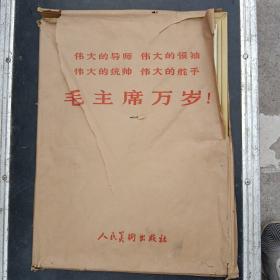 伟大的导师 伟大的领袖
伟大的统帅 伟大的舵手
毛主席万岁!
一
人民美术出版社